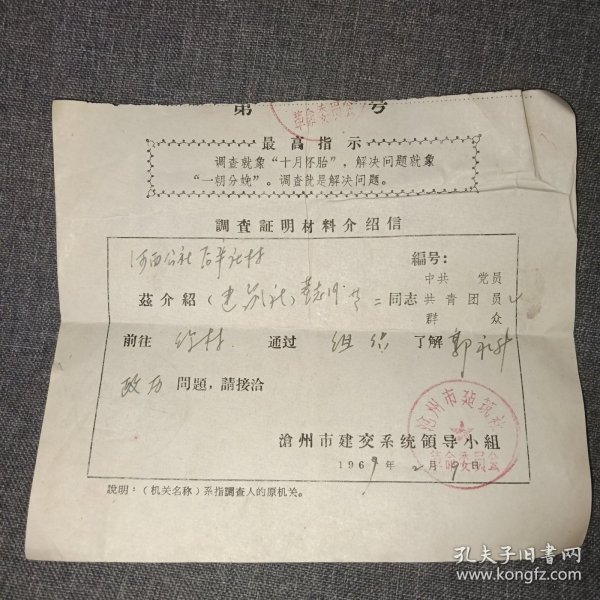 第 号
革命委员会
最高指示
调查就象“十月怀胎”，解决问题就象
“一朝分娩”。调查就是解决问题。
調查証明材料介绍信
河西公社
編号：
中共 党员
茲介紹（建筑社） 二同志共青团员
群众
前往 村 通过 组织 了解 郭
政历 問題，請接洽
滄州市建交系統領导小組
1969年2月9日
沧州市建筑社
革命委员会
說明：（机关名称）系指調查人的原机关。
孔夫子旧书网
www.kongfz.com